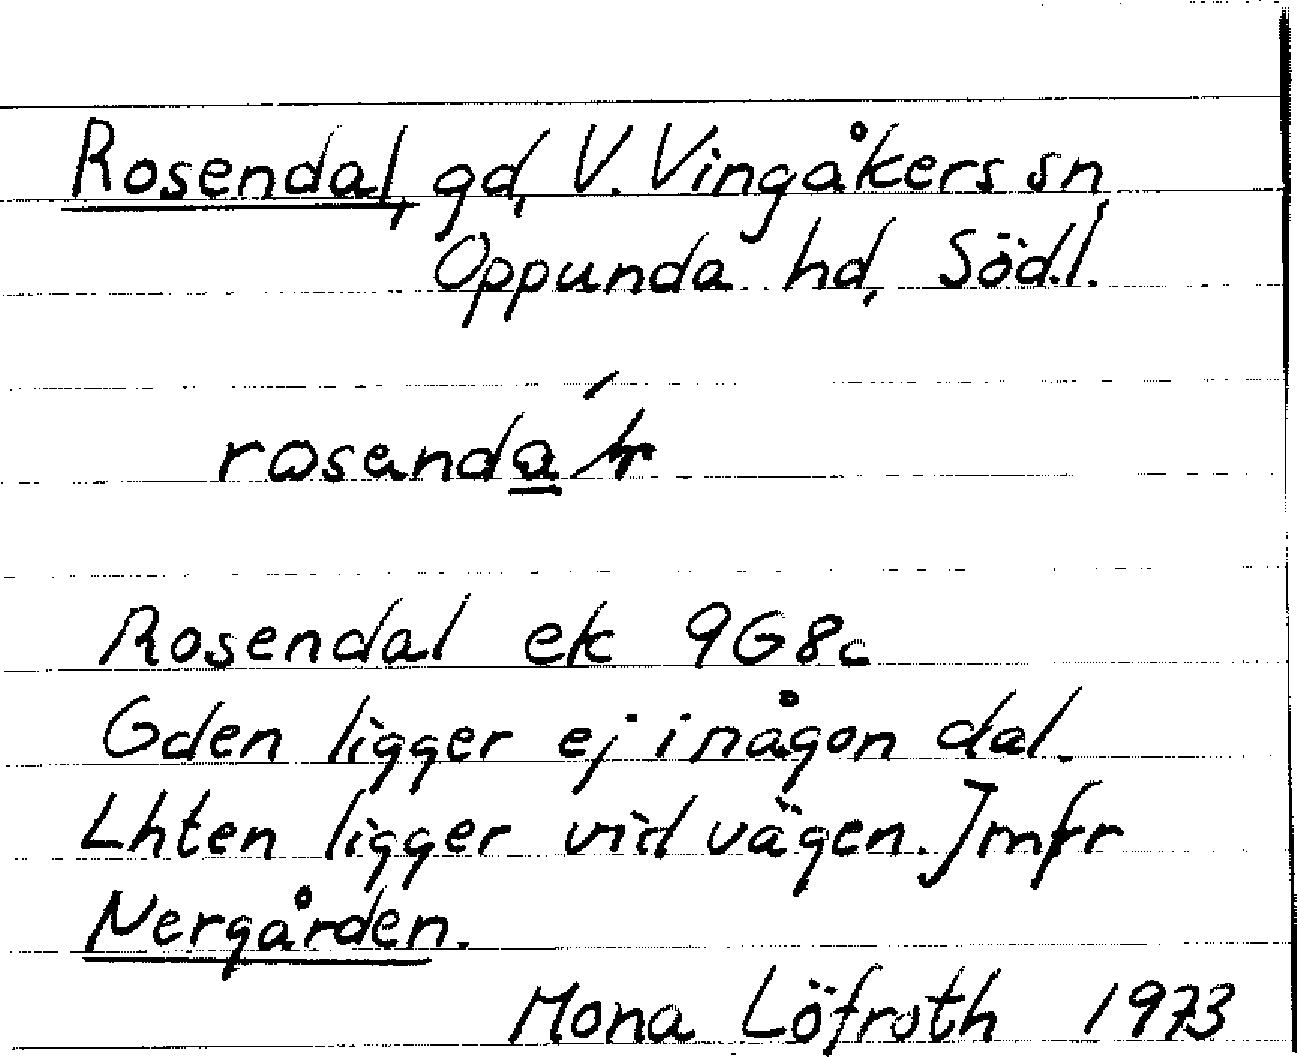 Rosendal, gd, V. Vingåkers sn,
Oppunda hd, Södl.
Rosendal ek 9G8c
Gden ligger ej i någon dal.
Lhten ligger vid vägen. Jmfr
Nergården.
Mona Löfroth 1973